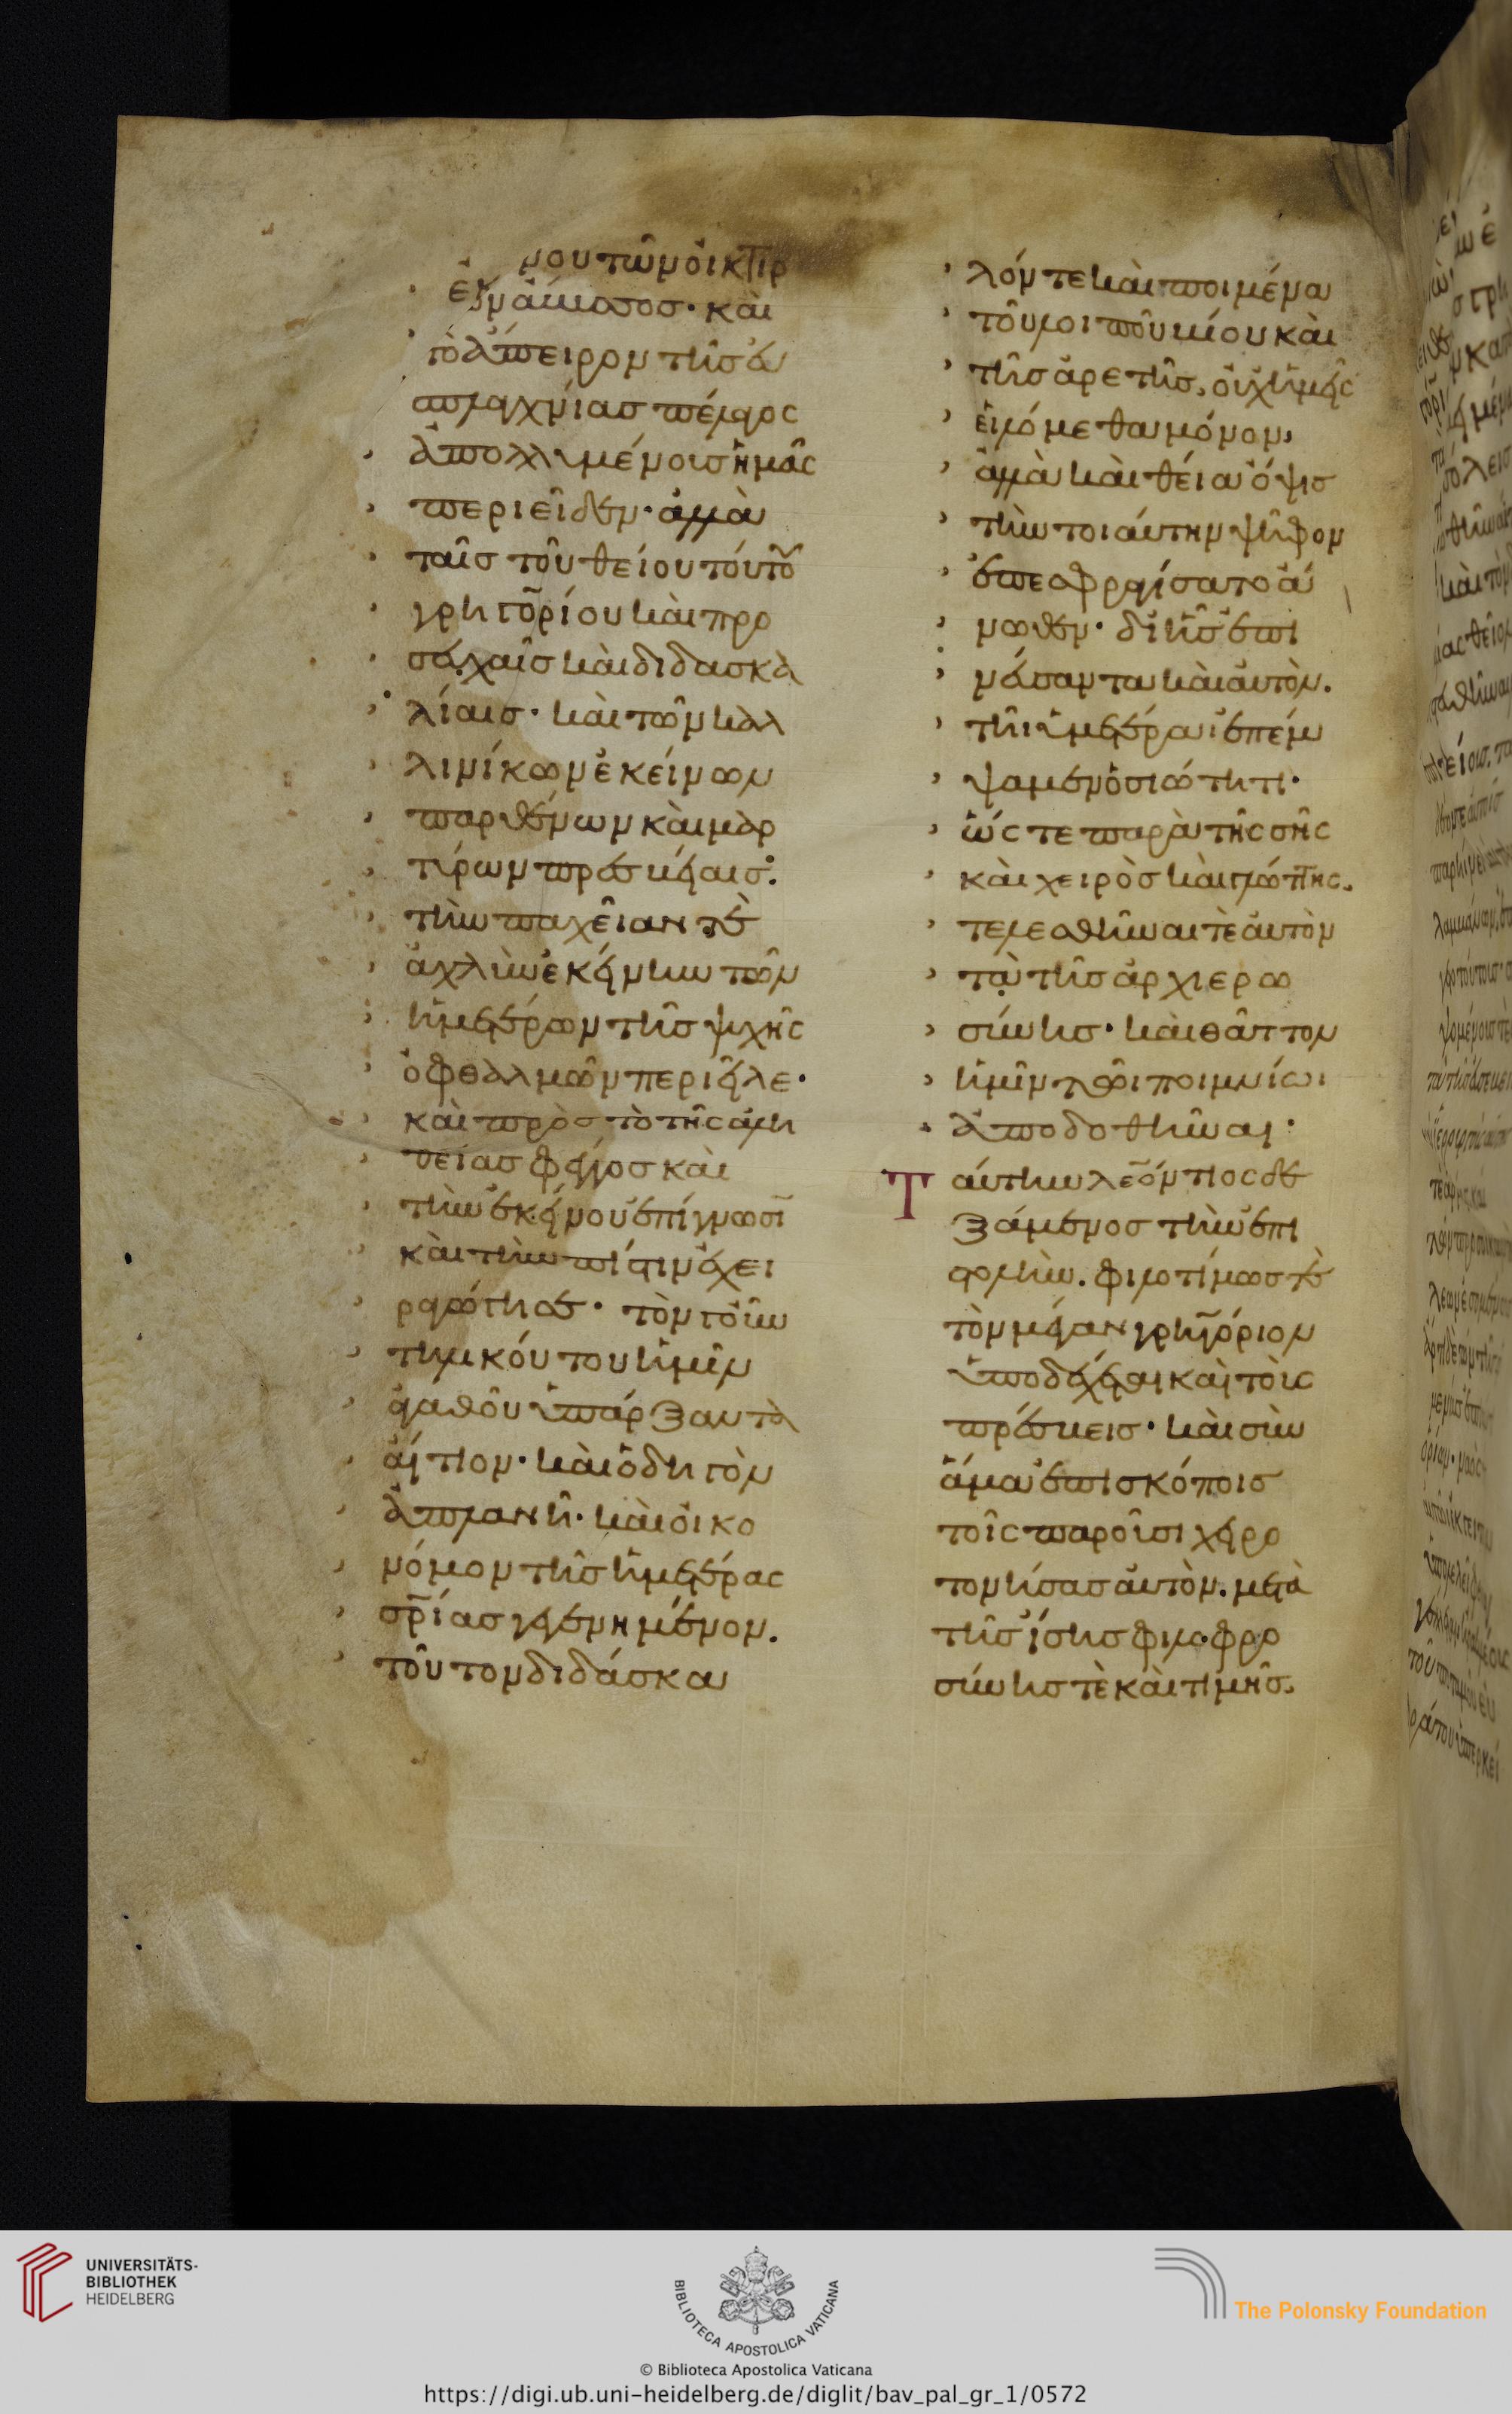 μου τῶν οἰκτιρ
καὶ
τὸ ἄπειρον τῆς εὐ
σπλαχνίας πέλαγος
ἀπολλυμένους ἡμᾶς
περιεῖδεν· ἀλλὰ
ταῖς τοῦ θείου τούτου
γρηγορίου καὶ προ
σευχαῖς καὶ διδασκα
λίαις· καὶ τῶν καλ
λινίκων ἐκείνων
παρθένων καὶ μαρ
τύρων πρεσβείαις·
τὴν παχεῖαν τὲ
ἀχλὺν ἐκείνην τῶν
ἡμετέρων τῆς ψυχῆς
ὀφθαλμῶν περιεῖλε·
καὶ πρὸς τὸ τῆς ἀλη
θείας φέγγος καὶ
τὴν ἐκείνου ἐπίγνωσιν
καὶ τὴν πίστιν ἐχει
ραγώγησε· τὸν τοίνυν
τηλικούτου ἡμῖν
ἀγαθοῦ ὑπάρξαντα
αἴτιον· καὶ ὁδηγὸν
ἀπλανῆ· καὶ οἰκο
νόμον τῆς ἡμετέρας
σρίας γεγενημένον.
τοῦτον διδάσκα
λόν τε καὶ ποιμένα
τοῦ λοιποῦ βίου καὶ
τῆς ἀρετῆς, οὐχ ἡμεῖς
εἱλόμεθα μόνον,
ἀλλὰ καὶ θεία ὄψις
τὴν τοιαύτην ψῆφον
ἐπεσφραγίσατο ἄ
νωθεν· δι' ἧς ἐπι
νεύσαντα καὶ αὐτὸν.
τῇ ἡμετέρα ἐπέμ
ψαμεν ὁσιότητι·
ὥς τε παρὰ τῆς σῆς
καὶ χειρὸς καὶ γλώττης.
τελεσθῆναι τὲ αὐτὸν
τὰ τῆς ἀρχιερω
σύνης· καὶ θᾶττον
ἡμῖν τῶι ποιμνίωι
ἀποδοθῆναι·
Ταύτην λεόντιος δε
ξάμενος τὴν ἐπι
στολὴν. φιλοτίμως τὲ
τὸν μέγαν γρηγόριον
ὑποδέχεται καὶ τοὺς
πρέσβεις· καὶ σὺν
ἅμα ἐπισκόποις
τοῖς παροῦσι χειρο
τονήσας αὐτὸν. μετὰ
τῆς ἴσης φιλοφρο
σύνης τὲ καὶ τιμῆς.
UNIVERSITÄTS-
BIBLIOTHEK
HEIDELBERG
BIBLIOTECA APOSTOLICA VATICANA
The Polonsky Foundation
© Biblioteca Apostolica Vaticana
https://digi.ub.uni-heidelberg.de/diglit/bav_pal_gr_1/0572